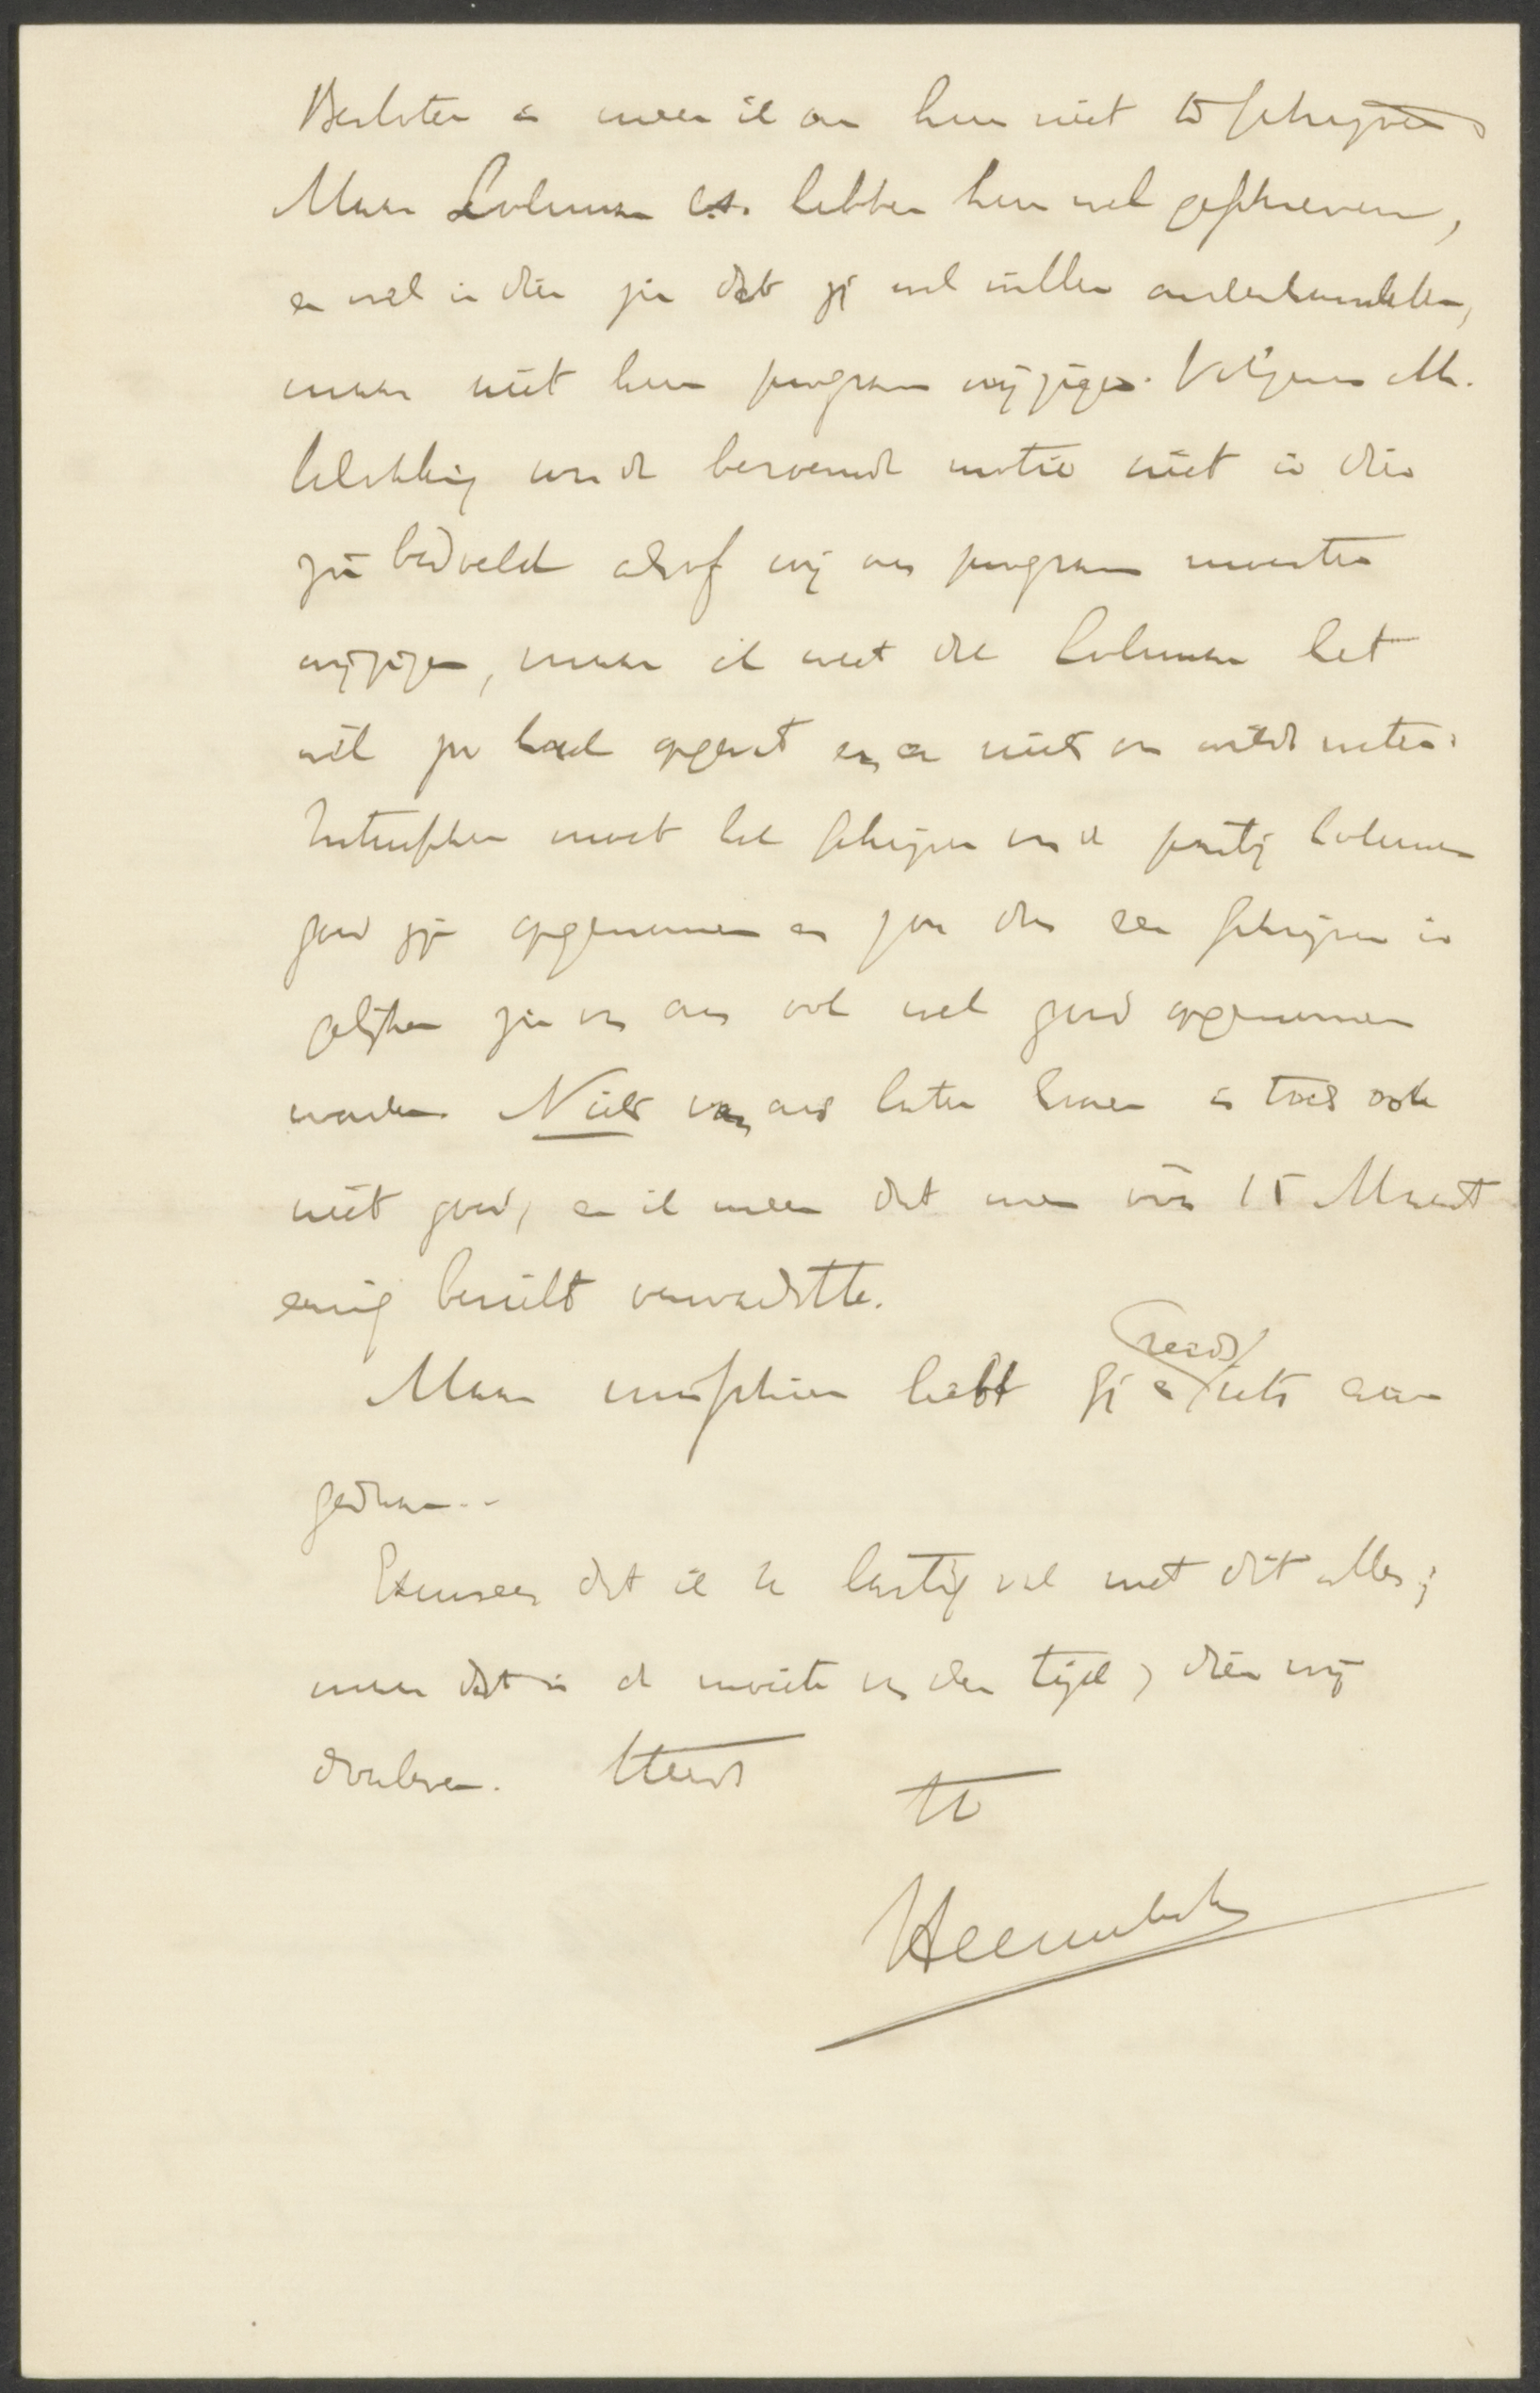 Besloten is meen ik om hun niet te schrijven
Maar Lohman c.s. hebben hun wel geschreven,
en wel in dien zin dat zij wel willen onderhandelen,
maar niet hun program wijzigen. Volgens Mr.
was de beroemde motie niet in dien
zin bedoeld alsof wij ons program moesten
wijzigen, maar ik weet dat Lohman het
wel zoo had opgevat en er niets van wilde weten.
Intusschen moet het schrijven van de partij Lohman
goed zijn opgenomen en zou dus een schrijven in
gelijken zin van ons ook wel goed opgenomen
worden. Niets van ons laten hooren is toch ook
niet goed, en ik meen dat men vóór 15 Maart
eenig bericht verwachtte.
Maar misschien hebt gij er reeds iets aan
gedaan..
Excuseer dat ik U lastig val met dit alles;
maar dat is de moeite van den tijd, dien wij
doorleven. Steeds
tt
Heemskerk